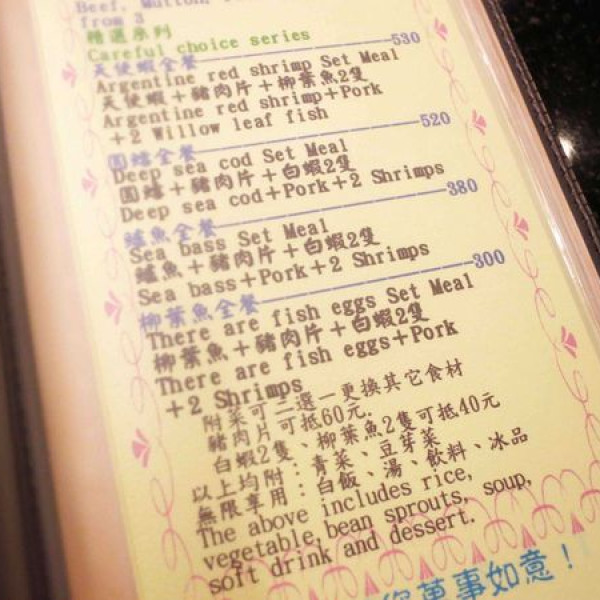 Beef, Mutton,
from 3
精選系列
Careful choice series
天使蝦全餐 530
Argentine red shrimp Set Meal
天使蝦＋豬肉片＋柳葉魚2隻
Argentine red shrimp＋Pork
＋2 Willow leaf fish
圓鱈全餐 520
Deep sea cod Set Meal
圓鱈＋豬肉片＋白蝦2隻
Deep sea cod＋Pork＋2 Shrimps
鱸魚全餐 380
Sea bass Set Meal
鱸魚＋豬肉片＋白蝦2隻
Sea bass＋Pork＋2 Shrimps
柳葉魚全餐 300
There are fish eggs Set Meal
柳葉魚＋豬肉片＋白蝦2隻
There are fish eggs＋Pork
＋2 Shrimps
附菜可二選一更換其它食材
豬肉片可抵60元.
白蝦2隻、柳葉魚2隻可抵40元
以上均附：青菜、豆芽菜
無限享用：白飯、湯、飲料、冰品
The above includes rice,
vegetable,bean sprouts, soup,
soft drink and dessert.
您萬事如意！